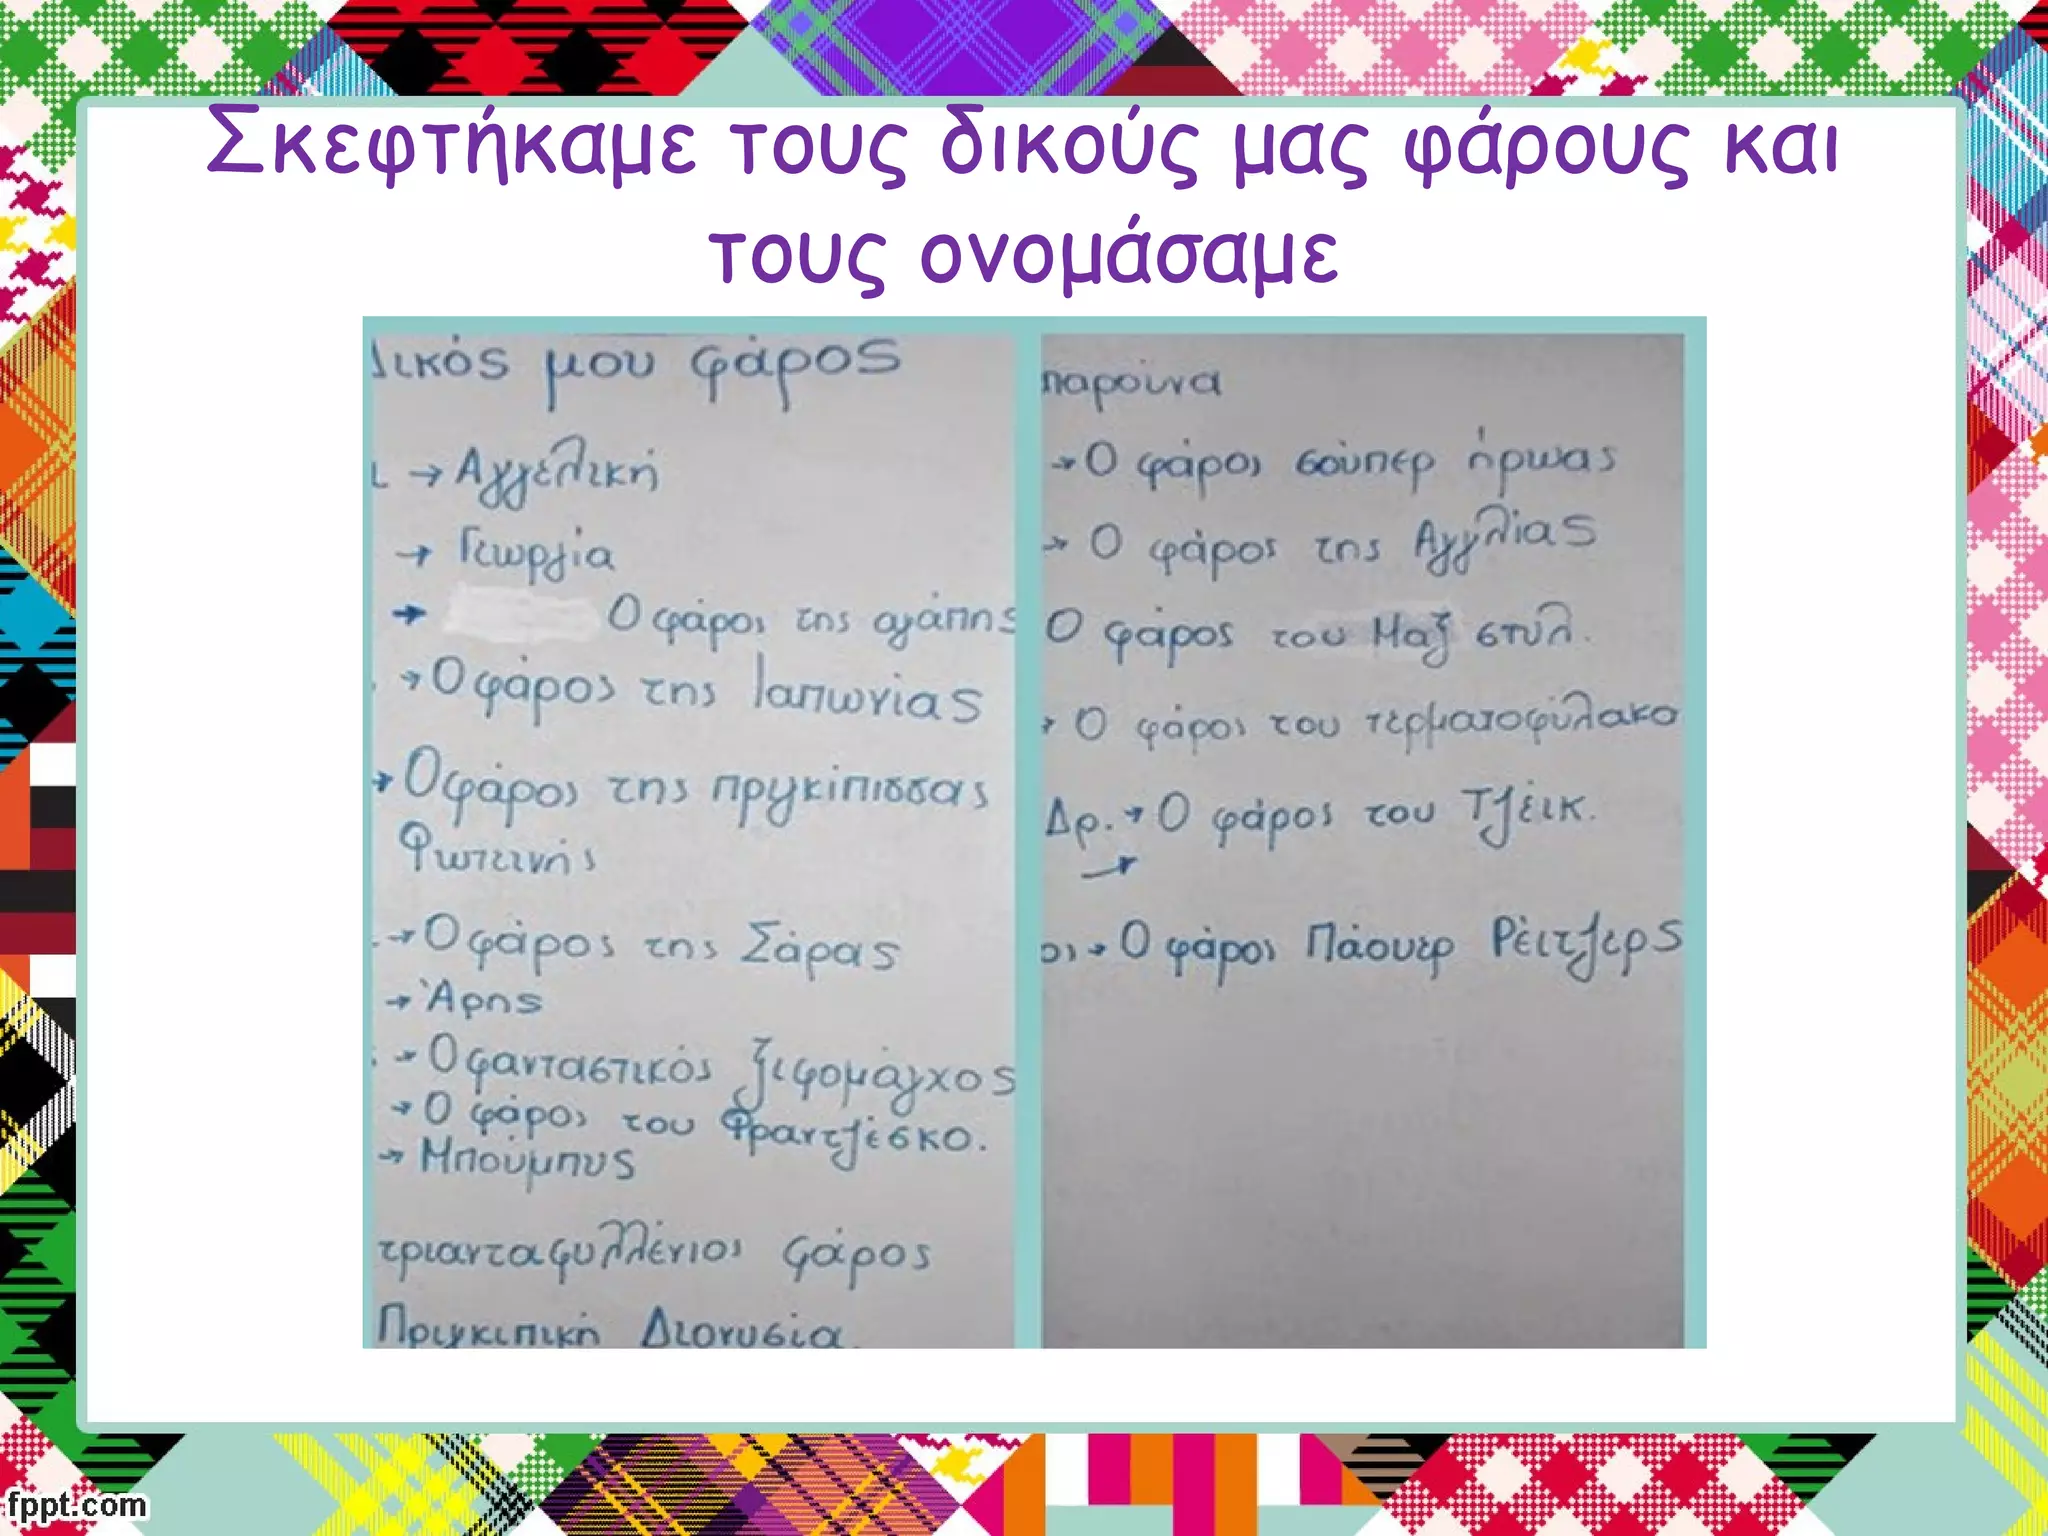 Σκεφτήκαμε τους δικούς μας φάρους και
τους ονομάσαμε
δικός μου φάρος
→ Αγγελική
→ Γεωργία
→ Ο φάρος της αγάπης
→ Ο φάρος της Ιαπωνίας
→ Ο φάρος της πριγκίπισσας
Φωτεινής
→ Ο φάρος της Σάρας
→ Άρης
→ Ο φανταστικός ξιφομάχος
→ Ο φάρος του Φραντζέσκο.
→ Μπούμπυς
τριανταφυλλένιος φάρος
Πριγκιπική Διονυσία.
παρούνα
→ Ο φάρος σούπερ ήρωας
→ Ο φάρος της Αγγλίας
Ο φάρος του Μαξ στυλ.
→ Ο φάρος του τερματοφύλακα
Δρ. → Ο φάρος του Τζέικ.
→
→ Ο φάρος Πάουερ Ρέιτζερς
fppt.com